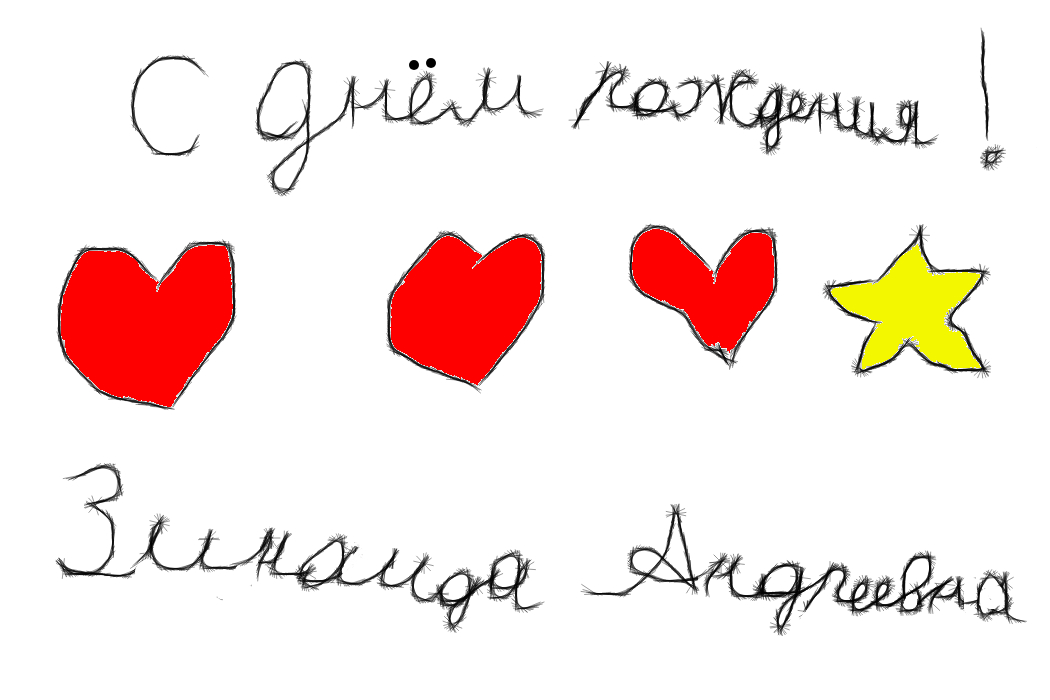 С днём рождения!
Зинаида Андреевна